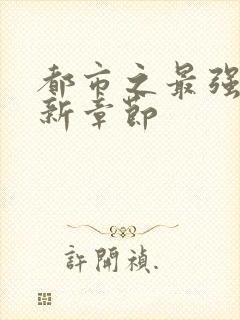 都市之最强
新章節
許開禎.